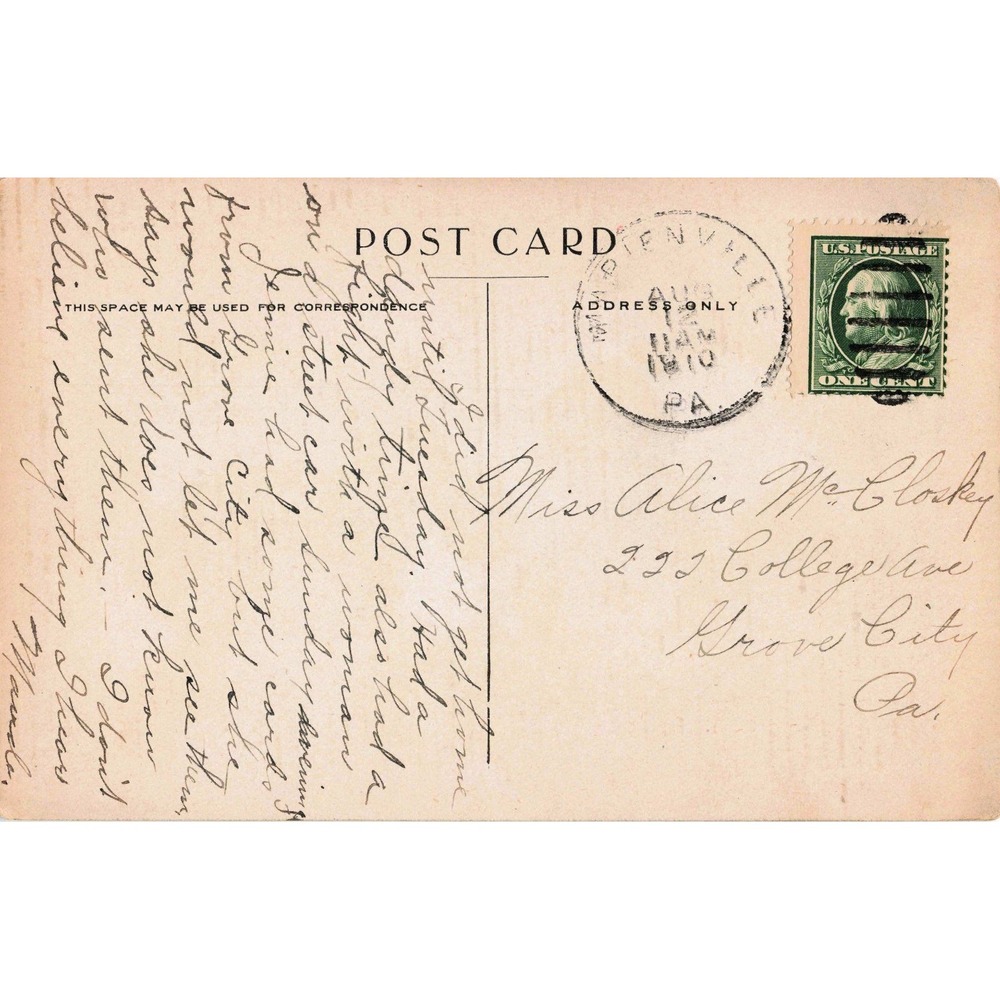 POST CARD
THIS SPACE MAY BE USED FOR CORRESPONDENCE
ADDRESS ONLY
MARIENVILLE
AUG
12
11 AM
1910
PA.
U.S. POSTAGE
ONE CENT
Miss Alice McCloskey
222 College Ave
Grove City
Pa.
I did not get home
until Tuesday. Had a
dandy time also had a
fight with a woman
on a street car Sunday evening
Jennie had some cards
from Grove City but she
would not let me see them,
says she does not know
who sent them. – I don't
believe everything I hear
Maude.